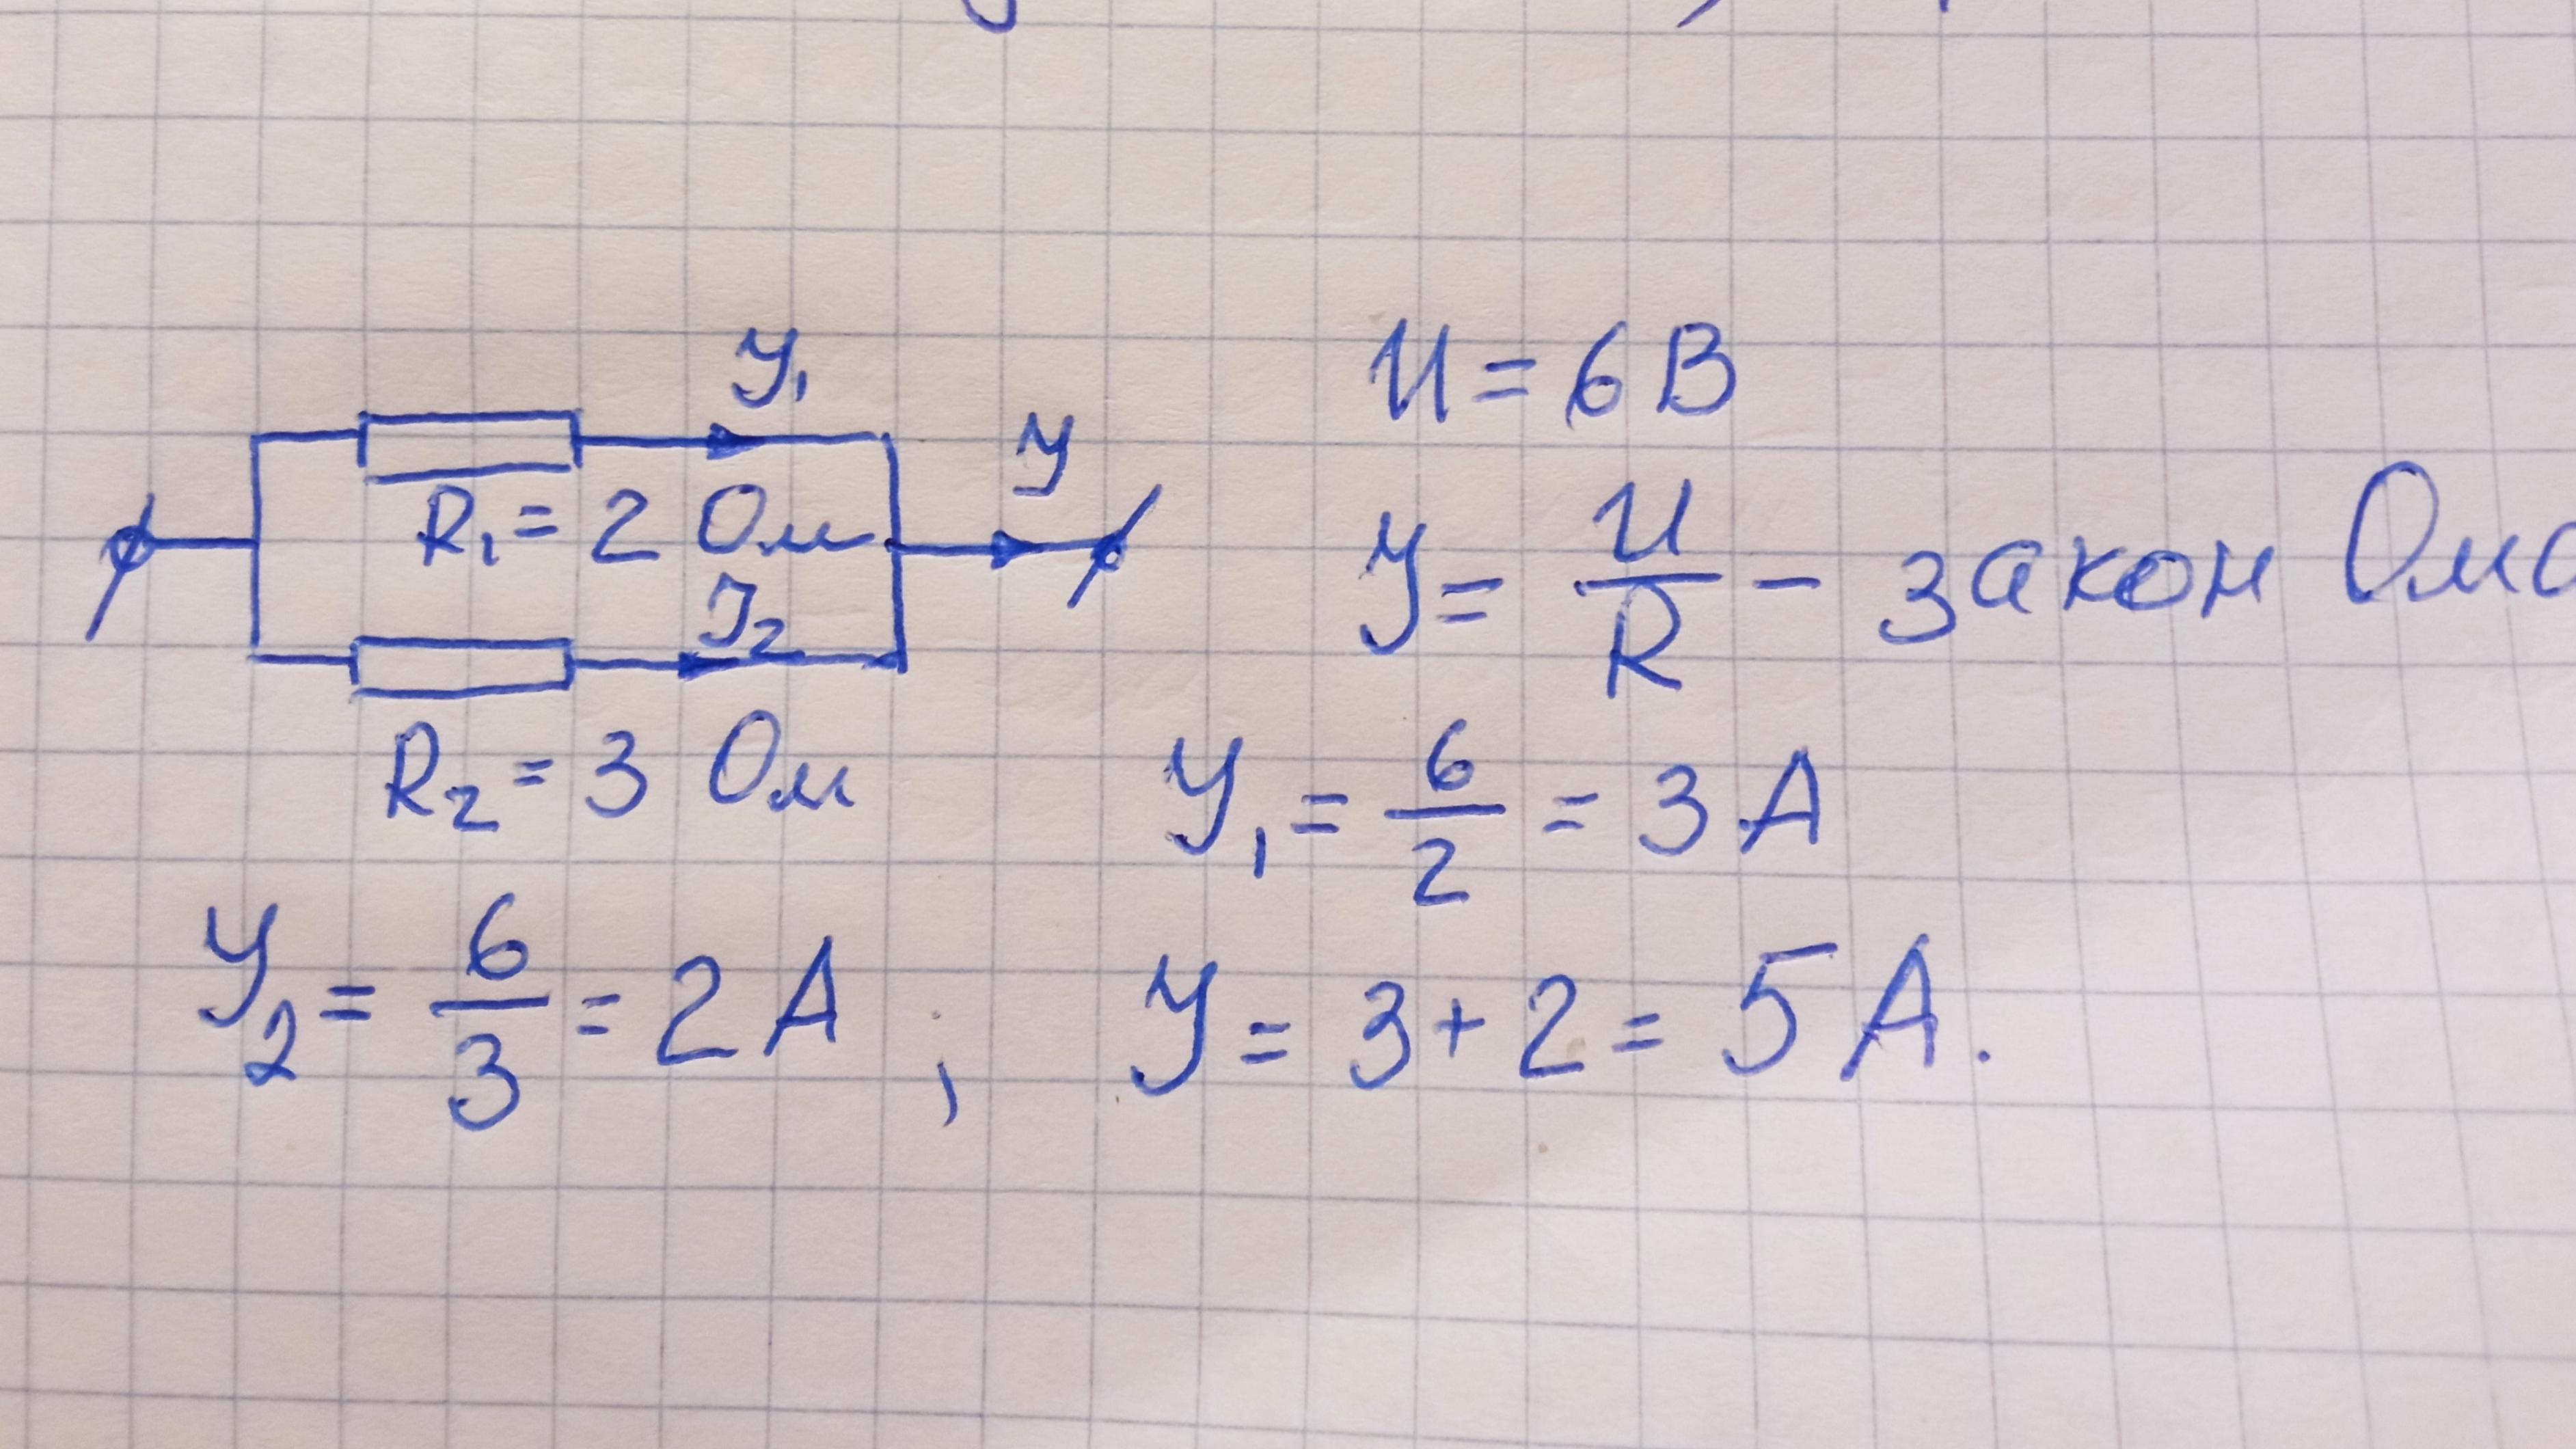 У₁
R₁ = 2 Ом
У
У₂
R₂ = 3 Ом
U = 6 В
У = U/R - закон Ома
У₁ = 6/2 = 3 А
У₂ = 6/3 = 2 А ; У = 3 + 2 = 5 А.